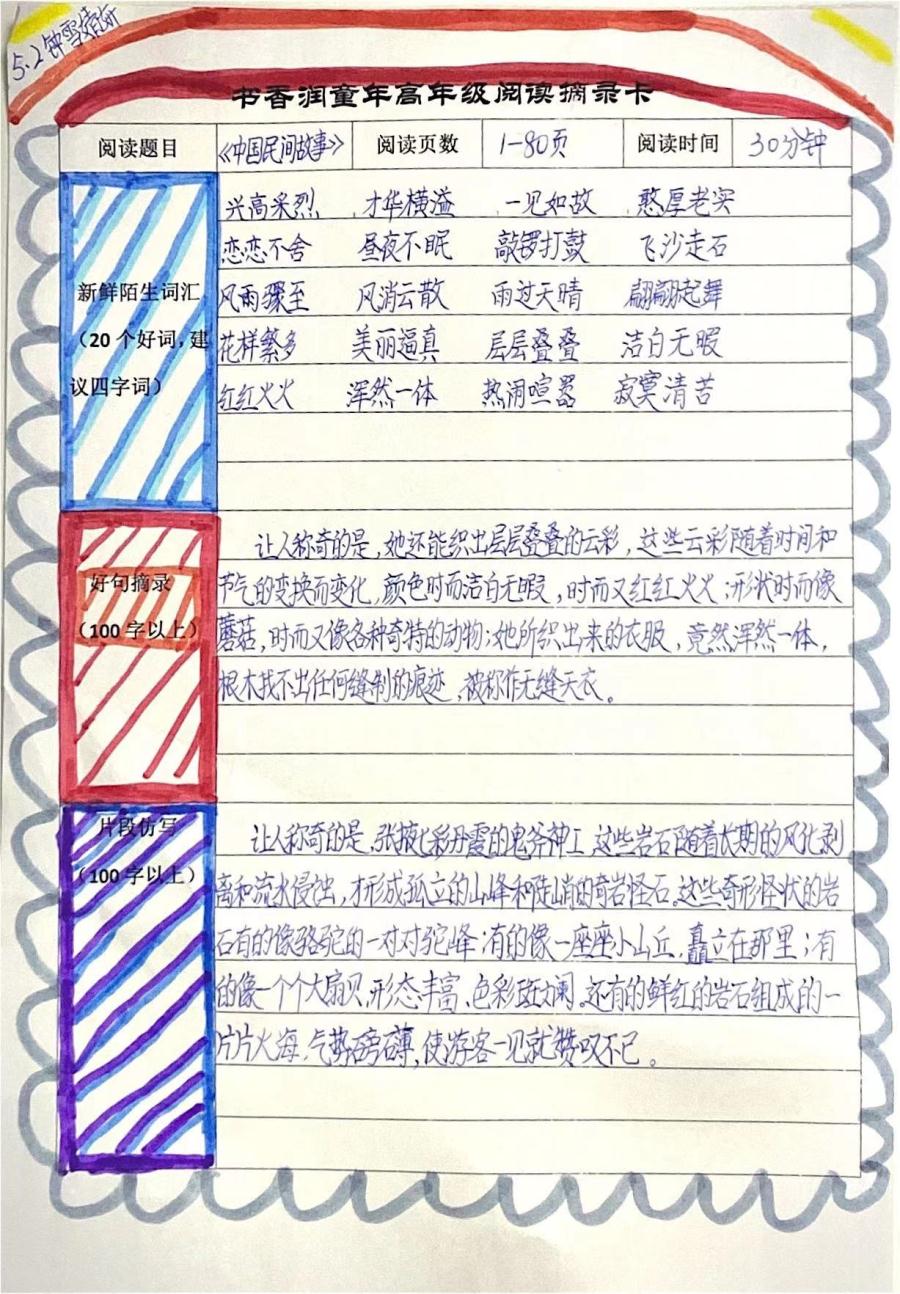 5.2 钟雪
书香润童年高年级阅读摘录卡
阅读题目 《中国民间故事》 阅读页数 1-80页 阅读时间 30分钟
新鲜陌生词汇
（20个好词，建
议四字词）
兴高采烈 才华横溢 一见如故 憨厚老实
恋恋不舍 昼夜不眠 敲锣打鼓 飞沙走石
风雨骤至 风消云散 雨过天晴 翩翩起舞
花样繁多 美丽逼真 层层叠叠 洁白无暇
红红火火 浑然一体 热闹喧嚣 寂寞清苦
好句摘录
（100字以上）
让人称奇的是，她还能织出层层叠叠的云彩，这些云彩随着时间和
节气的变换而变化，颜色时而洁白无暇，时而又红红火火；形状时而像
蘑菇，时而又像各种奇特的动物；她所织出来的衣服，竟然浑然一体，
根本找不出任何缝制的痕迹，被称作无缝天衣。
片段仿写
（100字以上）
让人称奇的是，张掖七彩丹霞的鬼斧神工，这些岩石随着长期的风化剥
离和流水侵蚀，才形成孤立的山峰和陡峭的奇岩怪石。这些奇形怪状的岩
石有的像骆驼的一对对驼峰；有的像一座座小山丘，矗立在那里；有
的像一个个大扇贝，形态丰富，色彩斑斓。还有的鲜红的岩石组成的一
片片火海，气势磅礴，使游客一见就赞叹不已。